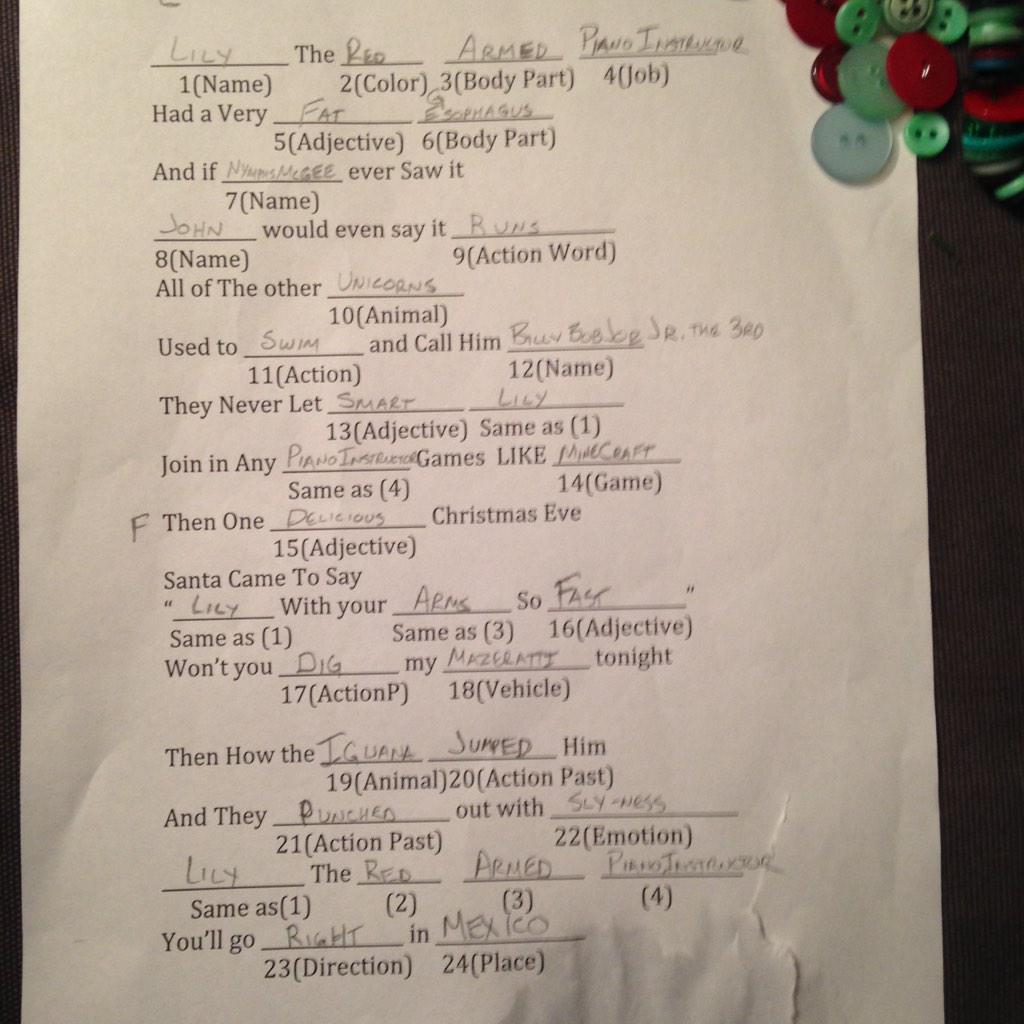 LILY The RED ARMED PIANO INSTRUCTOR
1(Name) 2(Color) 3(Body Part) 4(Job)
Had a Very FAT ESOPHAGUS
5(Adjective) 6(Body Part)
And if McGEE ever Saw it
7(Name)
JOHN would even say it RUNS
8(Name) 9(Action Word)
All of The other UNICORNS
10(Animal)
Used to SWIM and Call Him BILLY BOB JOE JR. THE 3RD
11(Action) 12(Name)
They Never Let SMART LILY
13(Adjective) Same as (1)
Join in Any PIANO INSTRUCTOR Games LIKE MINECRAFT
Same as (4) 14(Game)
F Then One DELICIOUS Christmas Eve
15(Adjective)
Santa Came To Say
“ LILY With your ARMS So FAST ”
Same as (1) Same as (3) 16(Adjective)
Won't you DIG my MAZERATTI tonight
17(ActionP) 18(Vehicle)
Then How the IGUANA JUMPED Him
19(Animal)20(Action Past)
And They PUNCHED out with SLY-NESS
21(Action Past) 22(Emotion)
LILY The RED ARMED PIANO INSTRUCTOR
Same as(1) (2) (3) (4)
You'll go RIGHT in MEXICO
23(Direction) 24(Place)